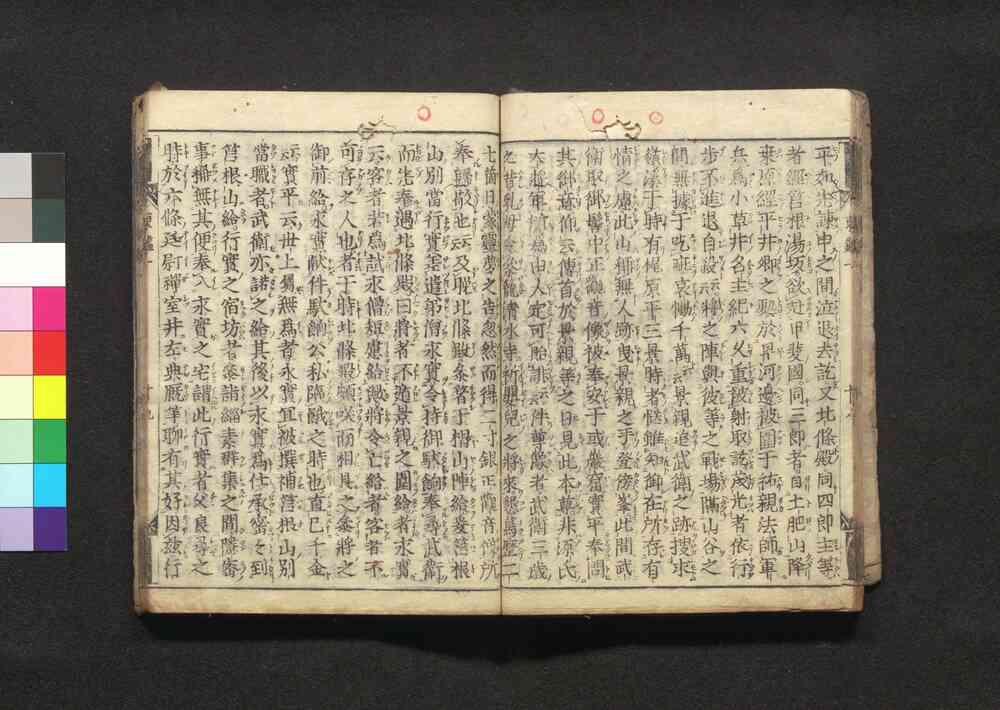 平如光謙申之間泣退去訖又北條殿同四郎主等
者經筥根湯坂欲赴甲斐國同三郎者自土肥山降
來原經平井郷之處於早河邊被圍于祐親法師軍
兵爲小草井名主紀六久重被射取訖茂光者依行
步不進退自殺云將之陣與彼等之戰場隔山谷之
間無據于吮疵哀慟千萬云景親追武衛之跡搜求
嶺溪于時有梶原平三景時者慥雖知御在所存有
情之慮此山稱無人跡曳景親之手登傍峯此間武
衛取御髻中正觀音像被奉安于或巖窟實平奉問
其御意仰云傳首於景親等之日見此本尊非源氏
大將軍所爲由人定可貽誹云件尊像者武衛三歲
之昔乳母令參籠清水寺祈嬰兒之將來懇篤歷二
七箇日蒙靈夢之告忽然而得二寸銀正觀音像所
奉歸敬也云及晚北條殿參着于椙山陣給爰筥根
山別當行實差遣弟僧永實令持御駄餉奉尋武衛
而先奉遇北條殿曰將者不遁景親之圍給者永實
云客者若爲試永僧短慮給歟將令亡給者客者不
可存之人也者于時北條殿頗咲而相具之參將之
御前給永實獻件駄餉公私臨餓之時也直已千金
云實平云世上屬無爲者永實宜被撰補筥根山別
當職者武衛亦諾之給其後以永實爲仕承密之到
筥根山給行實之宿坊者參詣緇素群集之間隱密
事稱無其便奉入永實之宅謂此行實者父良尋之
時於六條廷尉禪室并左典厩等聊有其好因茲行